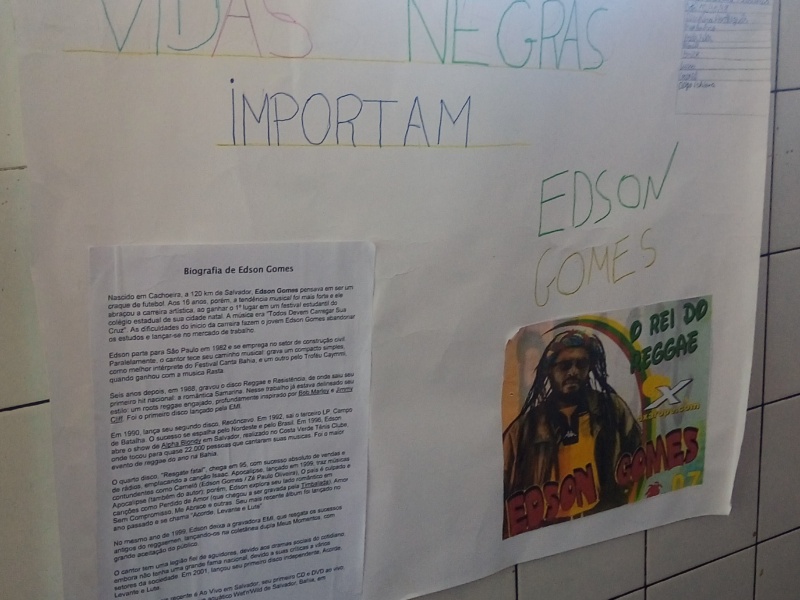 VIDAS NEGRAS
IMPORTAM
EDSON
GOMES
Biografia de Edson Gomes
Nascido em Cachoeira, a 120 km de Salvador, Edson Gomes pensava em ser um
craque de futebol. Aos 16 anos, porém, a tendência musical foi mais forte e ele
abraçou a carreira artística, ao ganhar o 1º lugar em um festival estudantil do
colégio estadual de sua cidade natal. A música era "Todos Devem Carregar Sua
Cruz". As dificuldades do início da carreira fazem o jovem Edson Gomes abandonar
os estudos e lançar-se no mercado de trabalho.
Edson parte para São Paulo em 1982 e se emprega no setor de construção civil.
Paralelamente, o cantor tece seu caminho musical: grava um compacto simples,
como melhor intérprete do Festival Canta Bahia, e um outro pelo Troféu Caymmi,
quando ganhou com a musica Rasta.
Seis anos depois, em 1988, gravou o disco Reggae e Resistência, de onde saiu seu
primeiro hit nacional: a romântica Samarina. Nesse trabalho já estava delineado seu
estilo: um roots reggae engajado, profundamente inspirado por Bob Marley e Jimmy
Cliff. Foi o primeiro disco lançado pela EMI.
Em 1990, lança seu segundo disco, Recôncavo. Em 1992, sai o terceiro LP, Campo
de Batalha. O sucesso se espalha pelo Nordeste e pelo Brasil. Em 1996, Edson
abre o show de Alpha Blondy em Salvador, realizado no Costa Verde Tênis Clube,
onde tocou para quase 22.000 pessoas que cantaram suas musicas. Foi o maior
evento de reggae do ano na Bahia.
O quarto disco, "Resgate fatal", chega em 95, com sucesso absoluto de vendas e
de rádios, emplacando a canção Isaac. Apocalipse, lançado em 1999, traz músicas
contundentes como Camelô (Edson Gomes / Zé Paulo Oliveira), O país é culpado e
Apocalipse (também do autor); porém, Edson explora seu lado romântico em
canções como Perdido de Amor (que chegou a ser gravada pela Timbalada), Amor
Sem Compromisso, Me Abrace e outras. Seu mais recente álbum foi lançado no
ano passado e se chama "Acorde, Levante e Lute"
No mesmo ano de 1999, Edson deixa a gravadora EMI, que resgata os sucessos
antigos do reggaeman, lançando-os na coletânea dupla Meus Momentos, com
grande aceitação do público.
O cantor tem uma legião fiel de seguidores, devido aos dramas sociais do cotidiano,
embora não tenha uma grande fama nacional, devido a suas críticas a vários
setores da sociedade. Em 2001, lançou seu primeiro disco independente, Acorde,
Levante e Lute.
recente é Ao Vivo em Salvador, seu primeiro CD e DVD ao vivo,
aquático Wet'n'Wild de Salvador, Bahia, em
O REI DO
REGGAE
X
EDSON GOMES